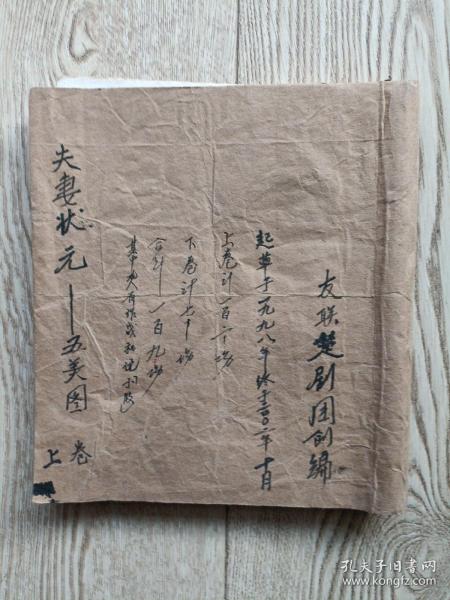 友联楚剧团创编
起草于一九九八年终于二00二年十月
上卷计一百二十场
下卷计七十场
合计一百九场
夫妻状元——五美图
上卷
孔夫子旧书网
www.kongfz.com